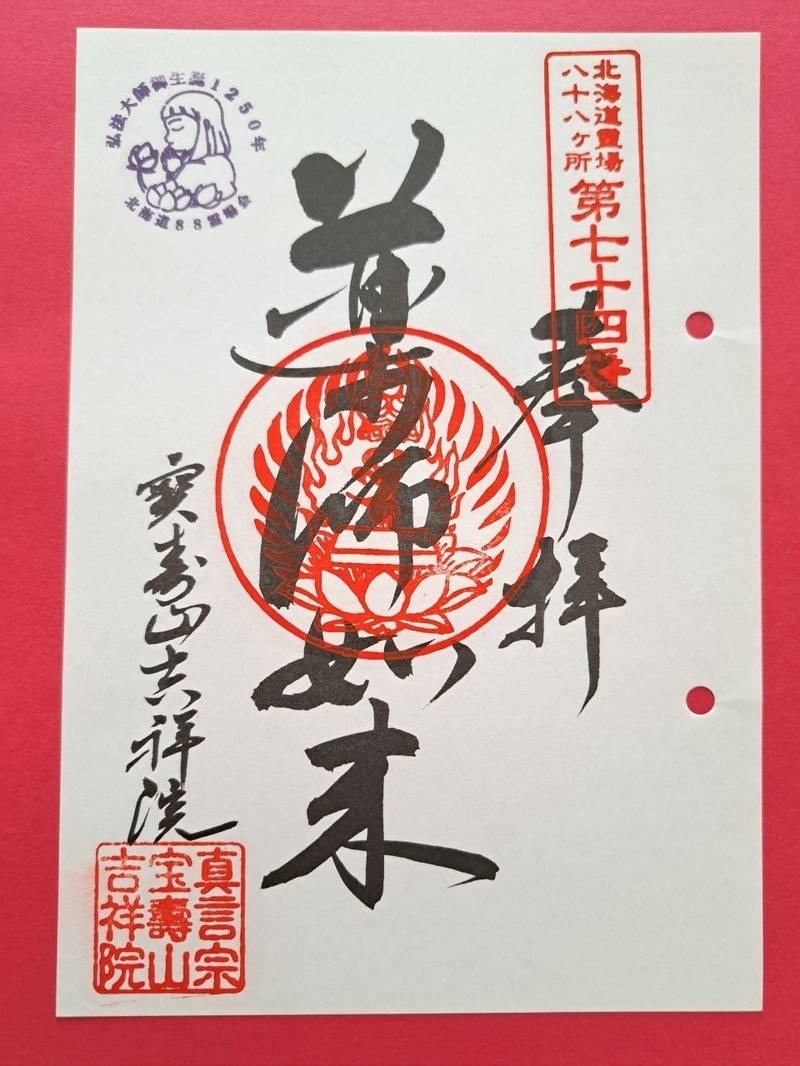 北海道霊場
八十八ヶ所
第七十四番
奉拝
薬師如来
寳寿山吉祥院
真言宗
宝壽山
吉祥院
弘法大師御生誕1250年
北海道88霊場会